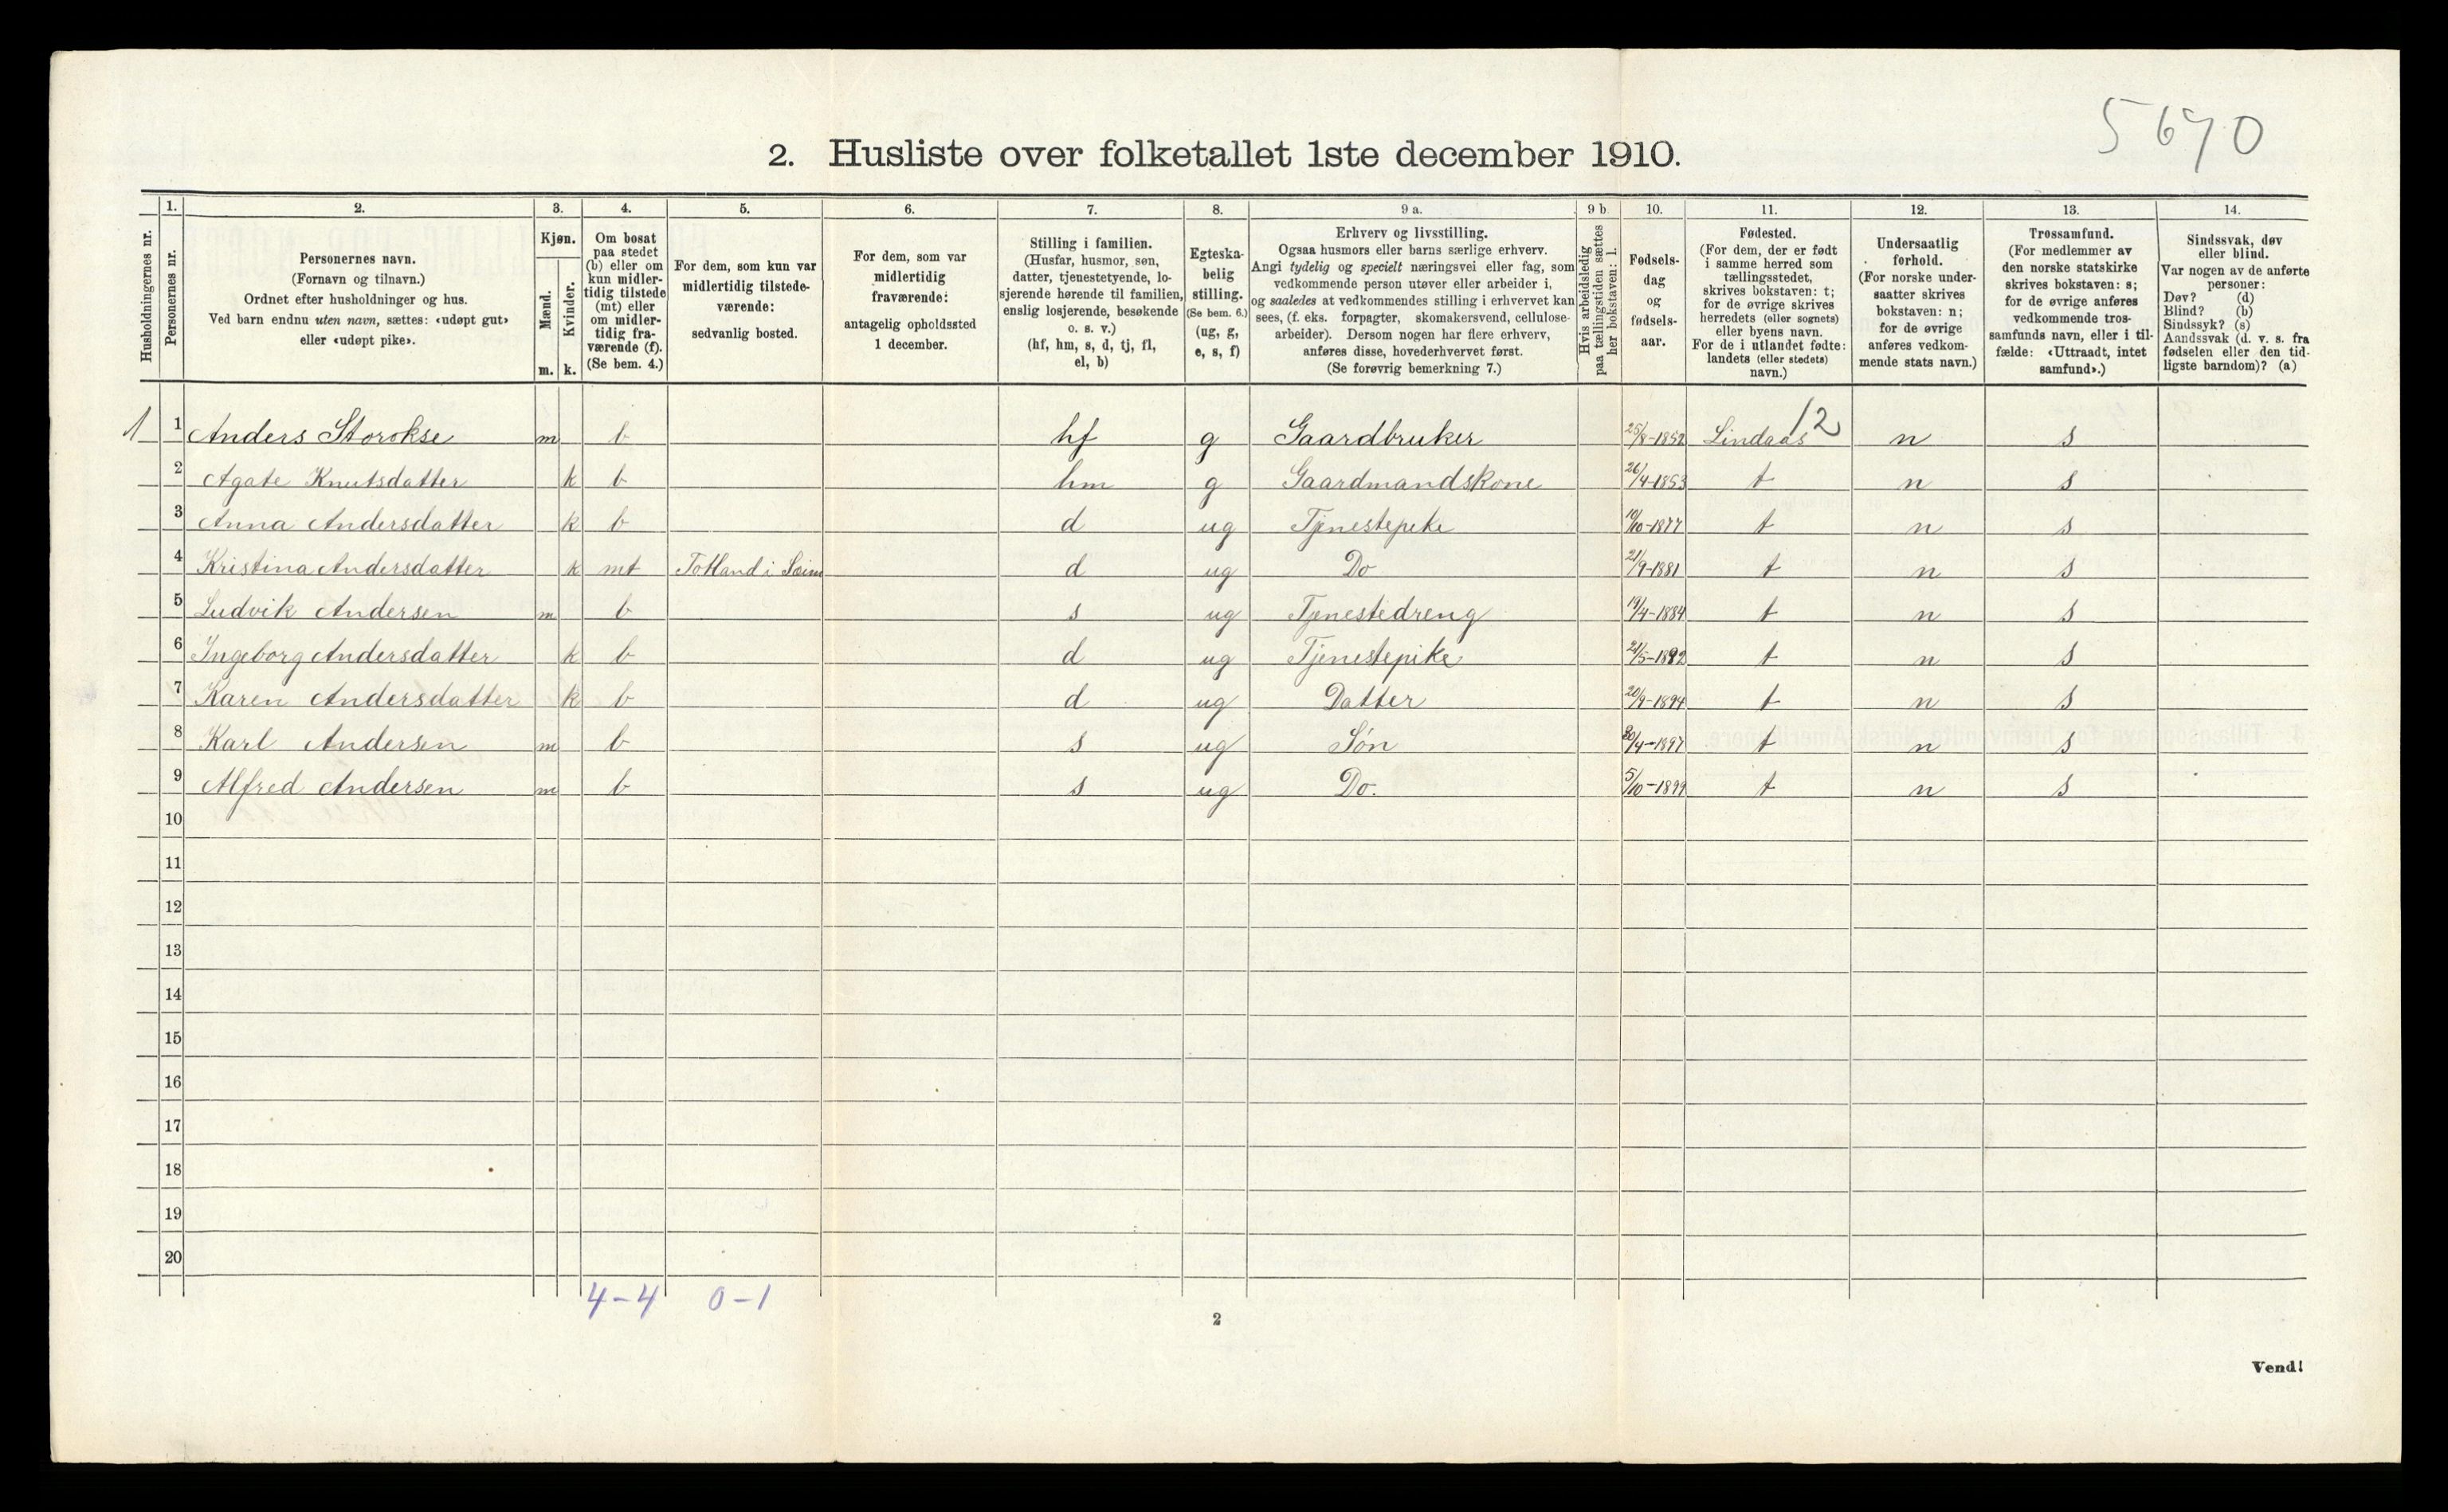 5670
2. Husliste over folketallet 1ste december 1910.
Husholdningernes nr.
1. Personernes nr.
2. Personernes navn.
(Fornavn og tilnavn.)
Ordnet efter husholdninger og hus.
Ved barn endnu uten navn, sættes: «udøpt gut»
eller «udøpt pike».
3. Kjøn.
Mænd. m.
Kvinder. k.
4. Om bosat
paa stedet
(b) eller om
kun midler-
tidig tilstede
(mt) eller
om midler-
tidig fra-
værende (f).
(Se bem. 4.)
5. For dem, som kun var
midlertidig tilstede-
værende:
sedvanlig bosted.
6. For dem, som var
midlertidig
fraværende:
antagelig opholdssted
1 december.
7. Stilling i familien.
(Husfar, husmor, søn,
datter, tjenestetyende, lo-
sjerende hørende til familien,
enslig losjerende, besøkende
o. s. v.)
(hf, hm, s, d, tj, fl,
el, b)
8. Egteska-
belig
stilling.
(Se bem. 6.)
(ug, g,
e, s, f)
9 a. Erhverv og livsstilling.
Ogsaa husmors eller barns særlige erhverv.
Angi tydelig og specielt næringsvei eller fag, som
vedkommende person utøver eller arbeider i,
og saaledes at vedkommendes stilling i erhvervet kan
sees, (f. eks. forpagter, skomakersvend, cellulose-
arbeider). Dersom nogen har flere erhverv,
anføres disse, hovederhvervet først.
(Se forøvrig bemerkning 7.)
9 b Hvis arbeidsledig
paa tællingstiden sættes
her bokstaven: l.
10. Fødsels-
dag
og
fødsels-
aar.
11. Fødested.
(For dem, der er født
i samme herred som
tællingsstedet,
skrives bokstaven: t;
for de øvrige skrives
herredets (eller sognets)
eller byens navn.
For de i utlandet fødte:
landets (eller stedets)
navn.)
12. Undersaatlig
forhold.
(For norske under-
saatter skrives
bokstaven: n;
for de øvrige
anføres vedkom-
mende stats navn.)
13. Trossamfund.
(For medlemmer av
den norske statskirke
skrives bokstaven: s;
for de øvrige anføres
vedkommende tros-
samfunds navn, eller i til-
fælde: «Uttraadt, intet
samfund».)
14. Sindssvak, døv
eller blind.
Var nogen av de anførte
personer:
Døv? (d)
Blind? (b)
Sindssyk? (s)
Aandssvak (d. v. s. fra
fødselen eller den tid-
ligste barndom)? (a)
12
1 1 Anders Storokse m b hf g Gaardbruker 25/8-1852 Lindaas n s
2 Agate Knutsdatter k b hm g Gaardmandskone 26/4-1853 t n s
3 Anna Andersdatter k b d ug Tjenestepike 10/10-1877 t n s
4 Kristina Andersdatter k mt Totland i Seim d ug Do 21/9-1881 t n s
5 Ludvik Andersen m b s ug Tjenestedreng 19/4-1884 t n s
6 Ingeborg Andersdatter k b d ug Tjenestepike 21/5-1892 t n s
7 Karen Andersdatter k b d ug Datter 20/9-1894 t n s
8 Karl Andersen m b s ug Søn 30/4-1897 t n s
9 Alfred Andersen m b s ug Do. 5/10-1899 t n s
10
11
12
13
14
15
16
17
18
19
20
4-4 0-1
2
Vend!